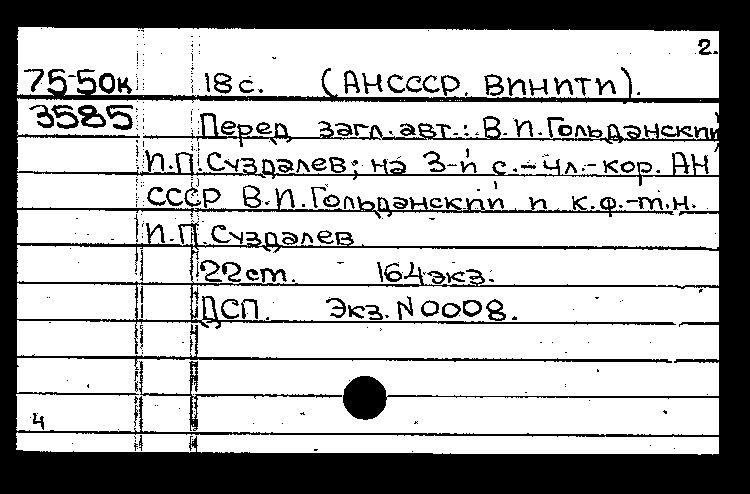 2.
75-50к 18 с. (АН СССР. ВИНИТИ).
3585 Перед загл. авт.: В.И.Гольданский
И.П.Суздалев; на 3-й с.- чл.-кор. АН
СССР В.И.Гольданский и к.ф.-т.н.
И.П.Суздалев
22 ст. 164 экз.
ДСП. Экз. N 0008.
4